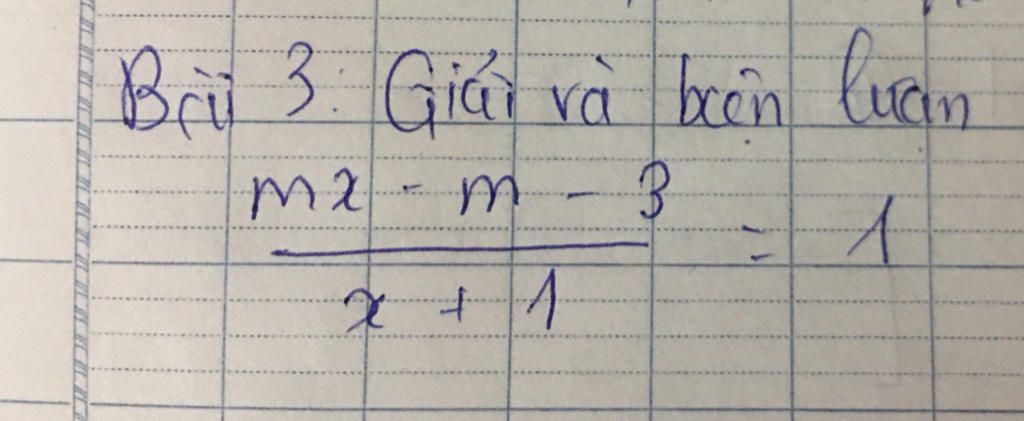 Bài 3: Giải và biện luận
mx - m - 3
= 1
x + 1